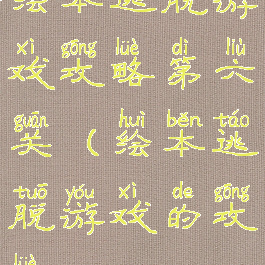 绘本逃脱游
xì gōng lüè dì liù
戏攻略第六
guān huì běn táo
关（绘本逃
tuō yóu xì de gōng
脱游戏的攻
lüè